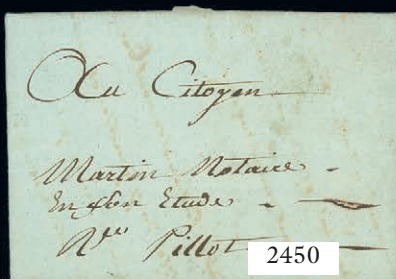 Au Citoyen
Martin Notaire
En son Etude
Rue Pillot
2450